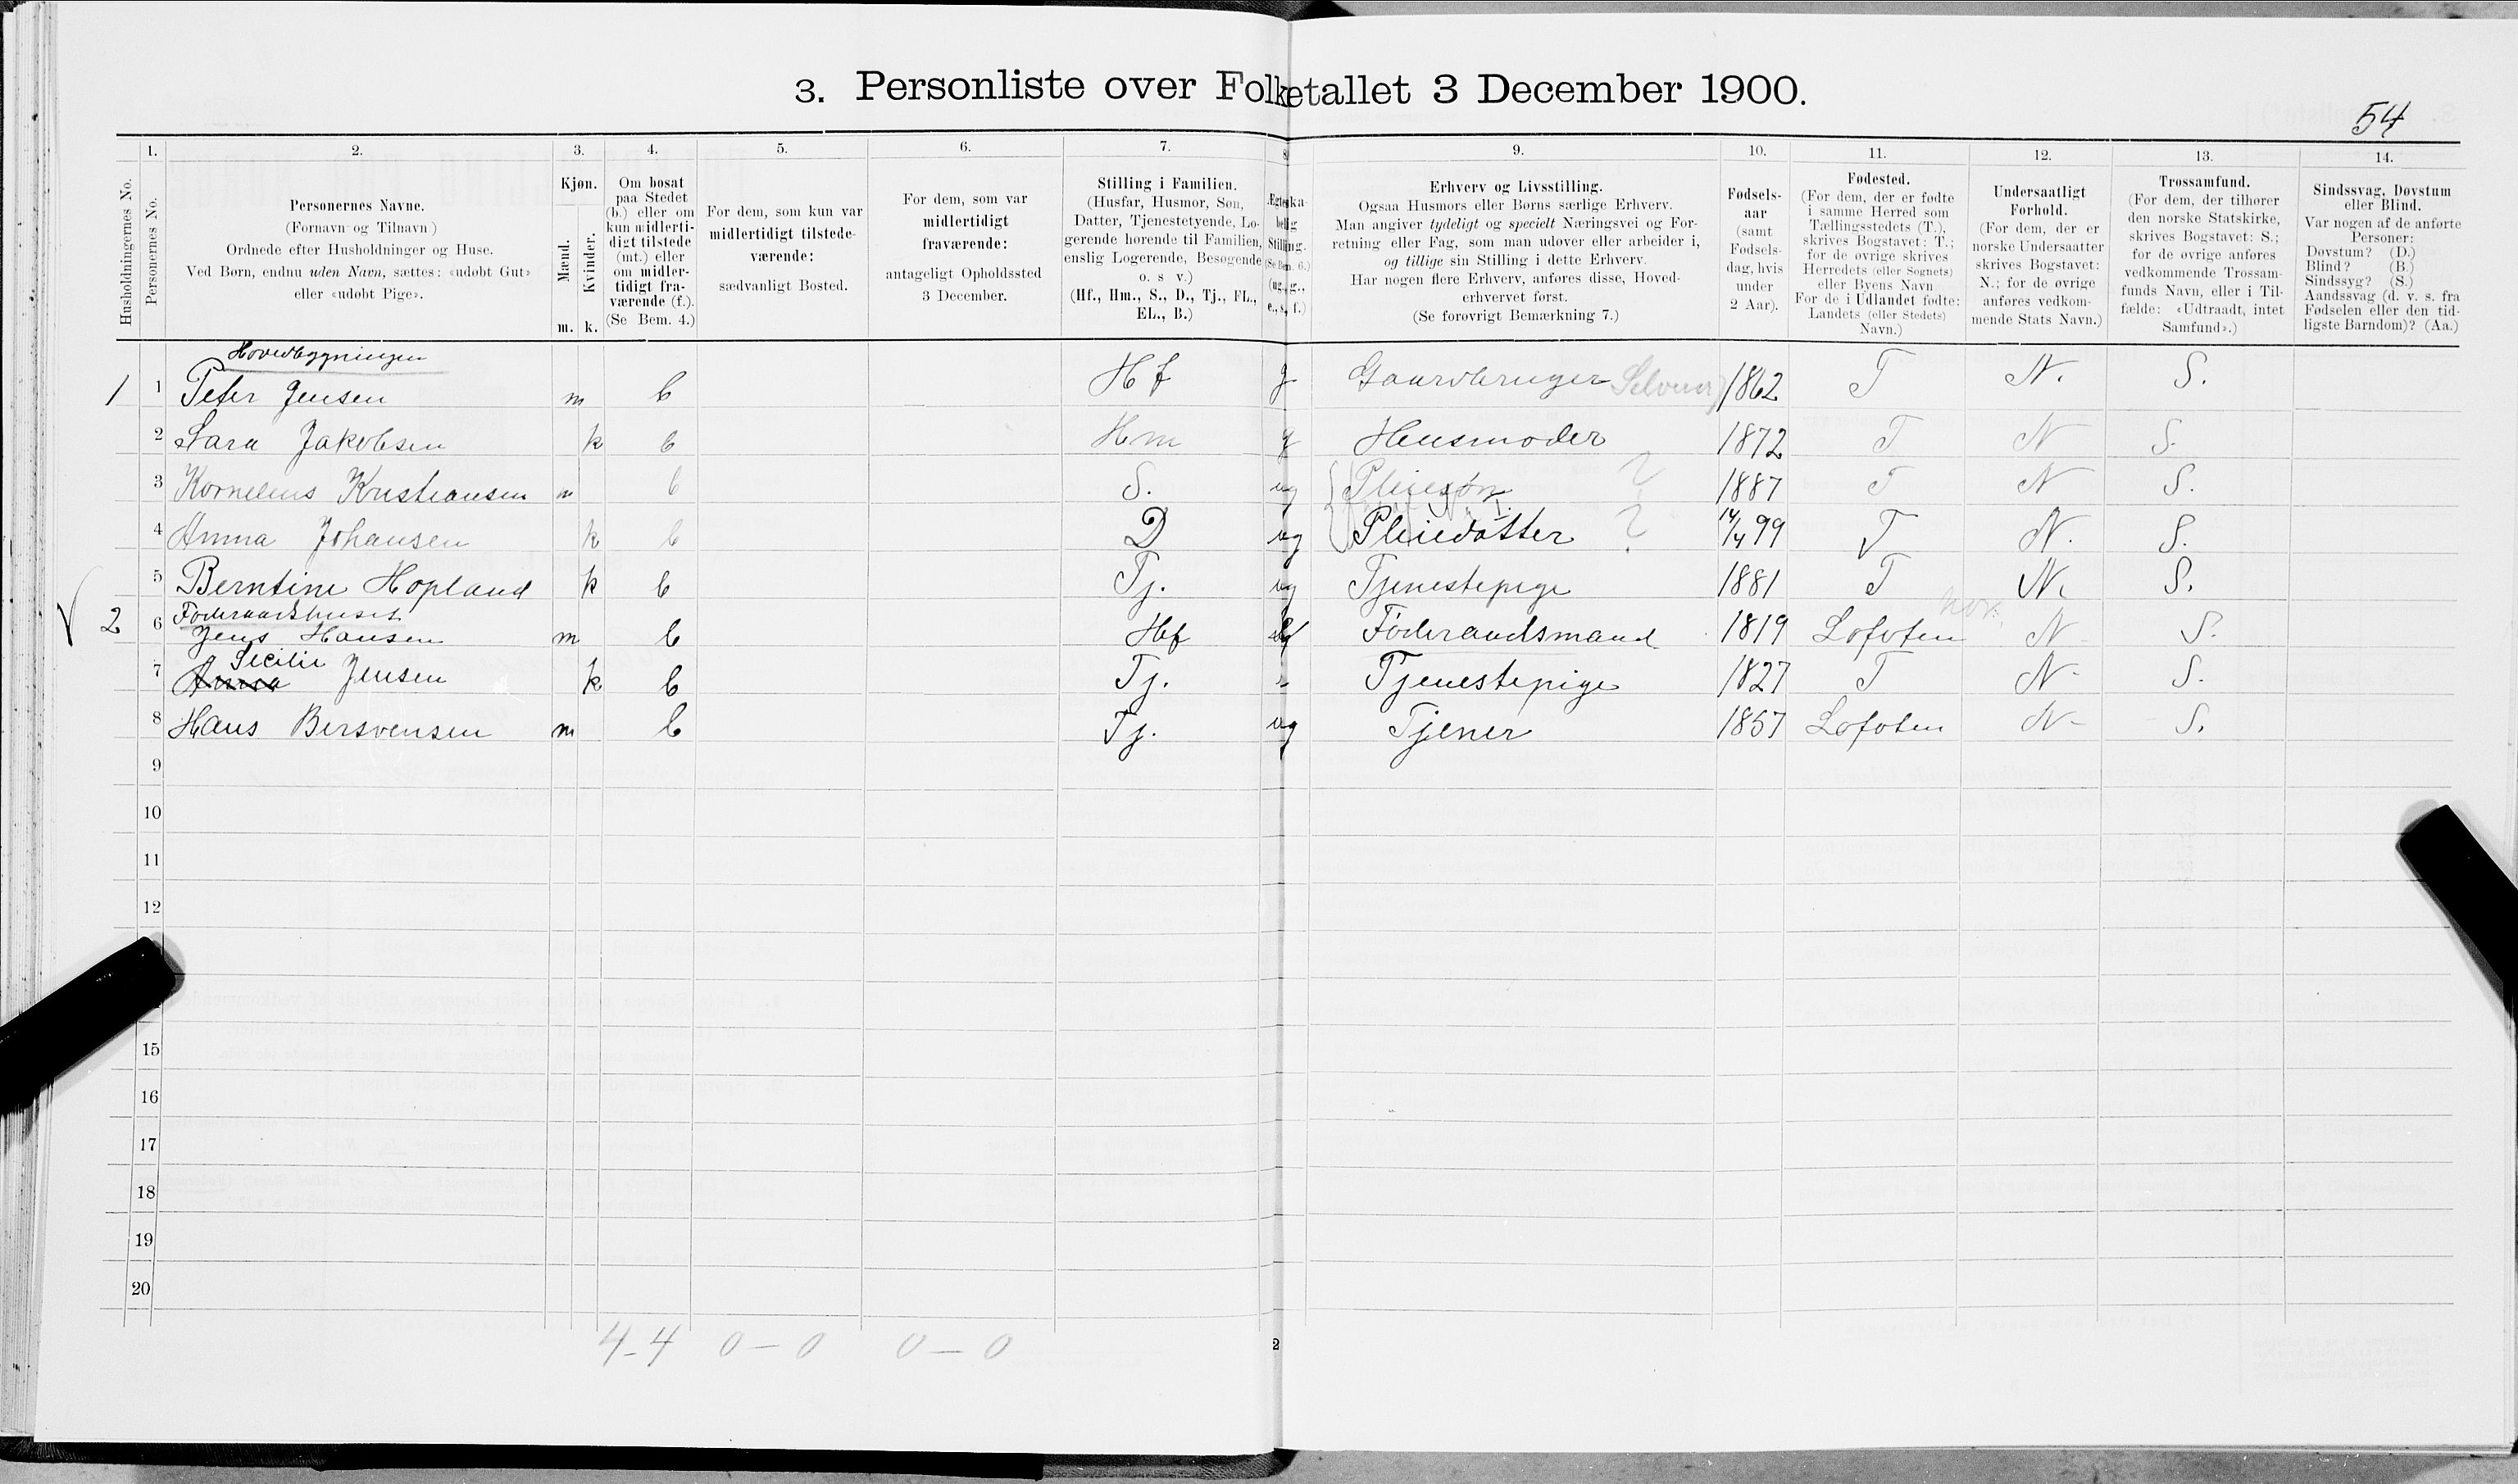 3. Personliste over Folketallet 3 December 1900.
54
1. 2. 3. 4. 5. 6. 7. 8 9. 10. 11. 12. 13. 14.
Husholdningernes No.
Personernes No.
Personernes Navne.
(Fornavn og Tilnavn)
Ordnede efter Husholdninger og Huse.
Ved Børn, endnu uden Navn, sættes: «udøbt Gut»
eller «udøbt Pige».
Kjøn.
Mænd.
Kvinder.
m. k.
Om bosat
paa Stedet
(b.) eller om
kun midlerti-
digt tilstede
(mt.) eller
om midler-
tidigt fra-
værende (f.).
(Se Bem. 4.)
For dem, som kun var
midlertidigt tilstede-
værende:
sædvanligt Bosted.
For dem, som var
midlertidigt
fraværende:
antageligt Opholdssted
3 December.
Stilling i Familien.
(Husfar, Husmor, Søn,
Datter, Tjenestetyende, Lo-
gerende hørende til Familien,
enslig Logerende, Besøgende
o. s v.)
(Hf., Hm., S., D., Tj., FL.,
EL., B.)
Ægteska-
belig
Stilling.
(Se Bem. 6.)
(ug., g.,
e., s., f.)
Erhverv og Livsstilling.
Ogsaa Husmors eller Børns særlige Erhverv.
Man angiver tydeligt og specielt Næringsvei og For-
retning eller Fag, som man udøver eller arbeider i,
og tillige sin Stilling i dette Erhverv.
Har nogen flere Erhverv, anføres disse, Hoved-
erhvervet først.
(Se forøvrigt Bemærkning 7.)
Fødsels-
aar
(samt
Fødsels-
dag, hvis
under
2 Aar).
Fødested.
(For dem, der er fødte
i samme Herred som
Tællingsstedets (T.),
skrives Bogstavet: T.;
for de øvrige skrives
Herredets (eller Sognets)
eller Byens Navn
For de i Udlandet fødte:
Landets (eller Stedets)
Navn.)
Undersaatligt
Forhold.
(For dem, der er
norske Undersaatter
skrives Bogstavet:
N.; for de øvrige
anføres vedkom-
mende Stats Navn.)
Trossamfund.
(For dem, der tilhører
den norske Statskirke,
skrives Bogstavet: S.;
for de øvrige anføres
vedkommende Trossam-
funds Navn, eller i Til-
fælde: «Udtraadt, intet
Samfund».)
Sindssvag, Døvstum
eller Blind.
Var nogen af de anførte
Personer:
Døvstum? (D.)
Blind? (B.)
Sindssyg? (S.)
Aandssvag (d. v. s. fra
Fødselen eller den tid-
ligste Barndom)? (Aa.)
Hovedbygningen
1 1 Peter Jensen m b Hf g Gaardbruger Selveier 1862 T N. S.
2 Sara Jakobsen k b Hm g Husmoder 1872 T N S.
3 Kornelius Kristiansen m b S. ug Pleiesøn ? 1887 T N S.
4 Anna Johansen k b D ug Pleiedatter ? 14/4 99 T N. S.
5 Berntine Hopland k b Tj. ug Tjenestepige 1881 T N. S.
Føderaadshuset
V 2 6 Jens Hansen m b Hf Føderaadsmand 1819 Lofoten N S.
Secilie
7 Anna Jensen k b Tj. Tjenestepige 1827 T N. S.
8 Hans Bersvensen m b Tj. ug Tjener 1857 Lofoten N S.
9
10
11
12
15
16
17
18
19
20
4-4 0-0 0-0
2